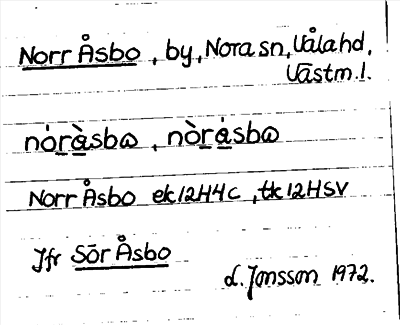 Norr Åsbo, by, Nora sn, Våla hd,
Västm. l.
nóràsbɷ, nòrásbɷ
Norr Åsbo ek 12H4c, tk 12HSV
Jfr Sör Åsbo
L. Jonsson 1972.